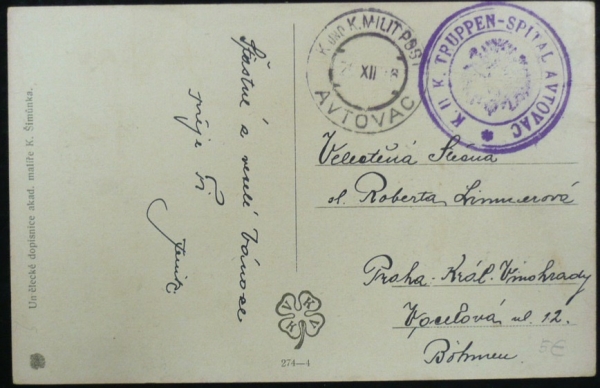 Umělecké dopisnice akad. malíře K. Šimůnka.
Šťastné a veselé Vánoce
přeje Ti
K. UND K. MILIT. POST
XII
AVTOVAC
K. U. K. TRUPPEN-SPITAL AVTOVAC
Velectěná Slečna
sl. Roberta Limmerová
Praha-Král. Vinohrady
ul. 12.
Böhmen.
V K V K
274—4
5€